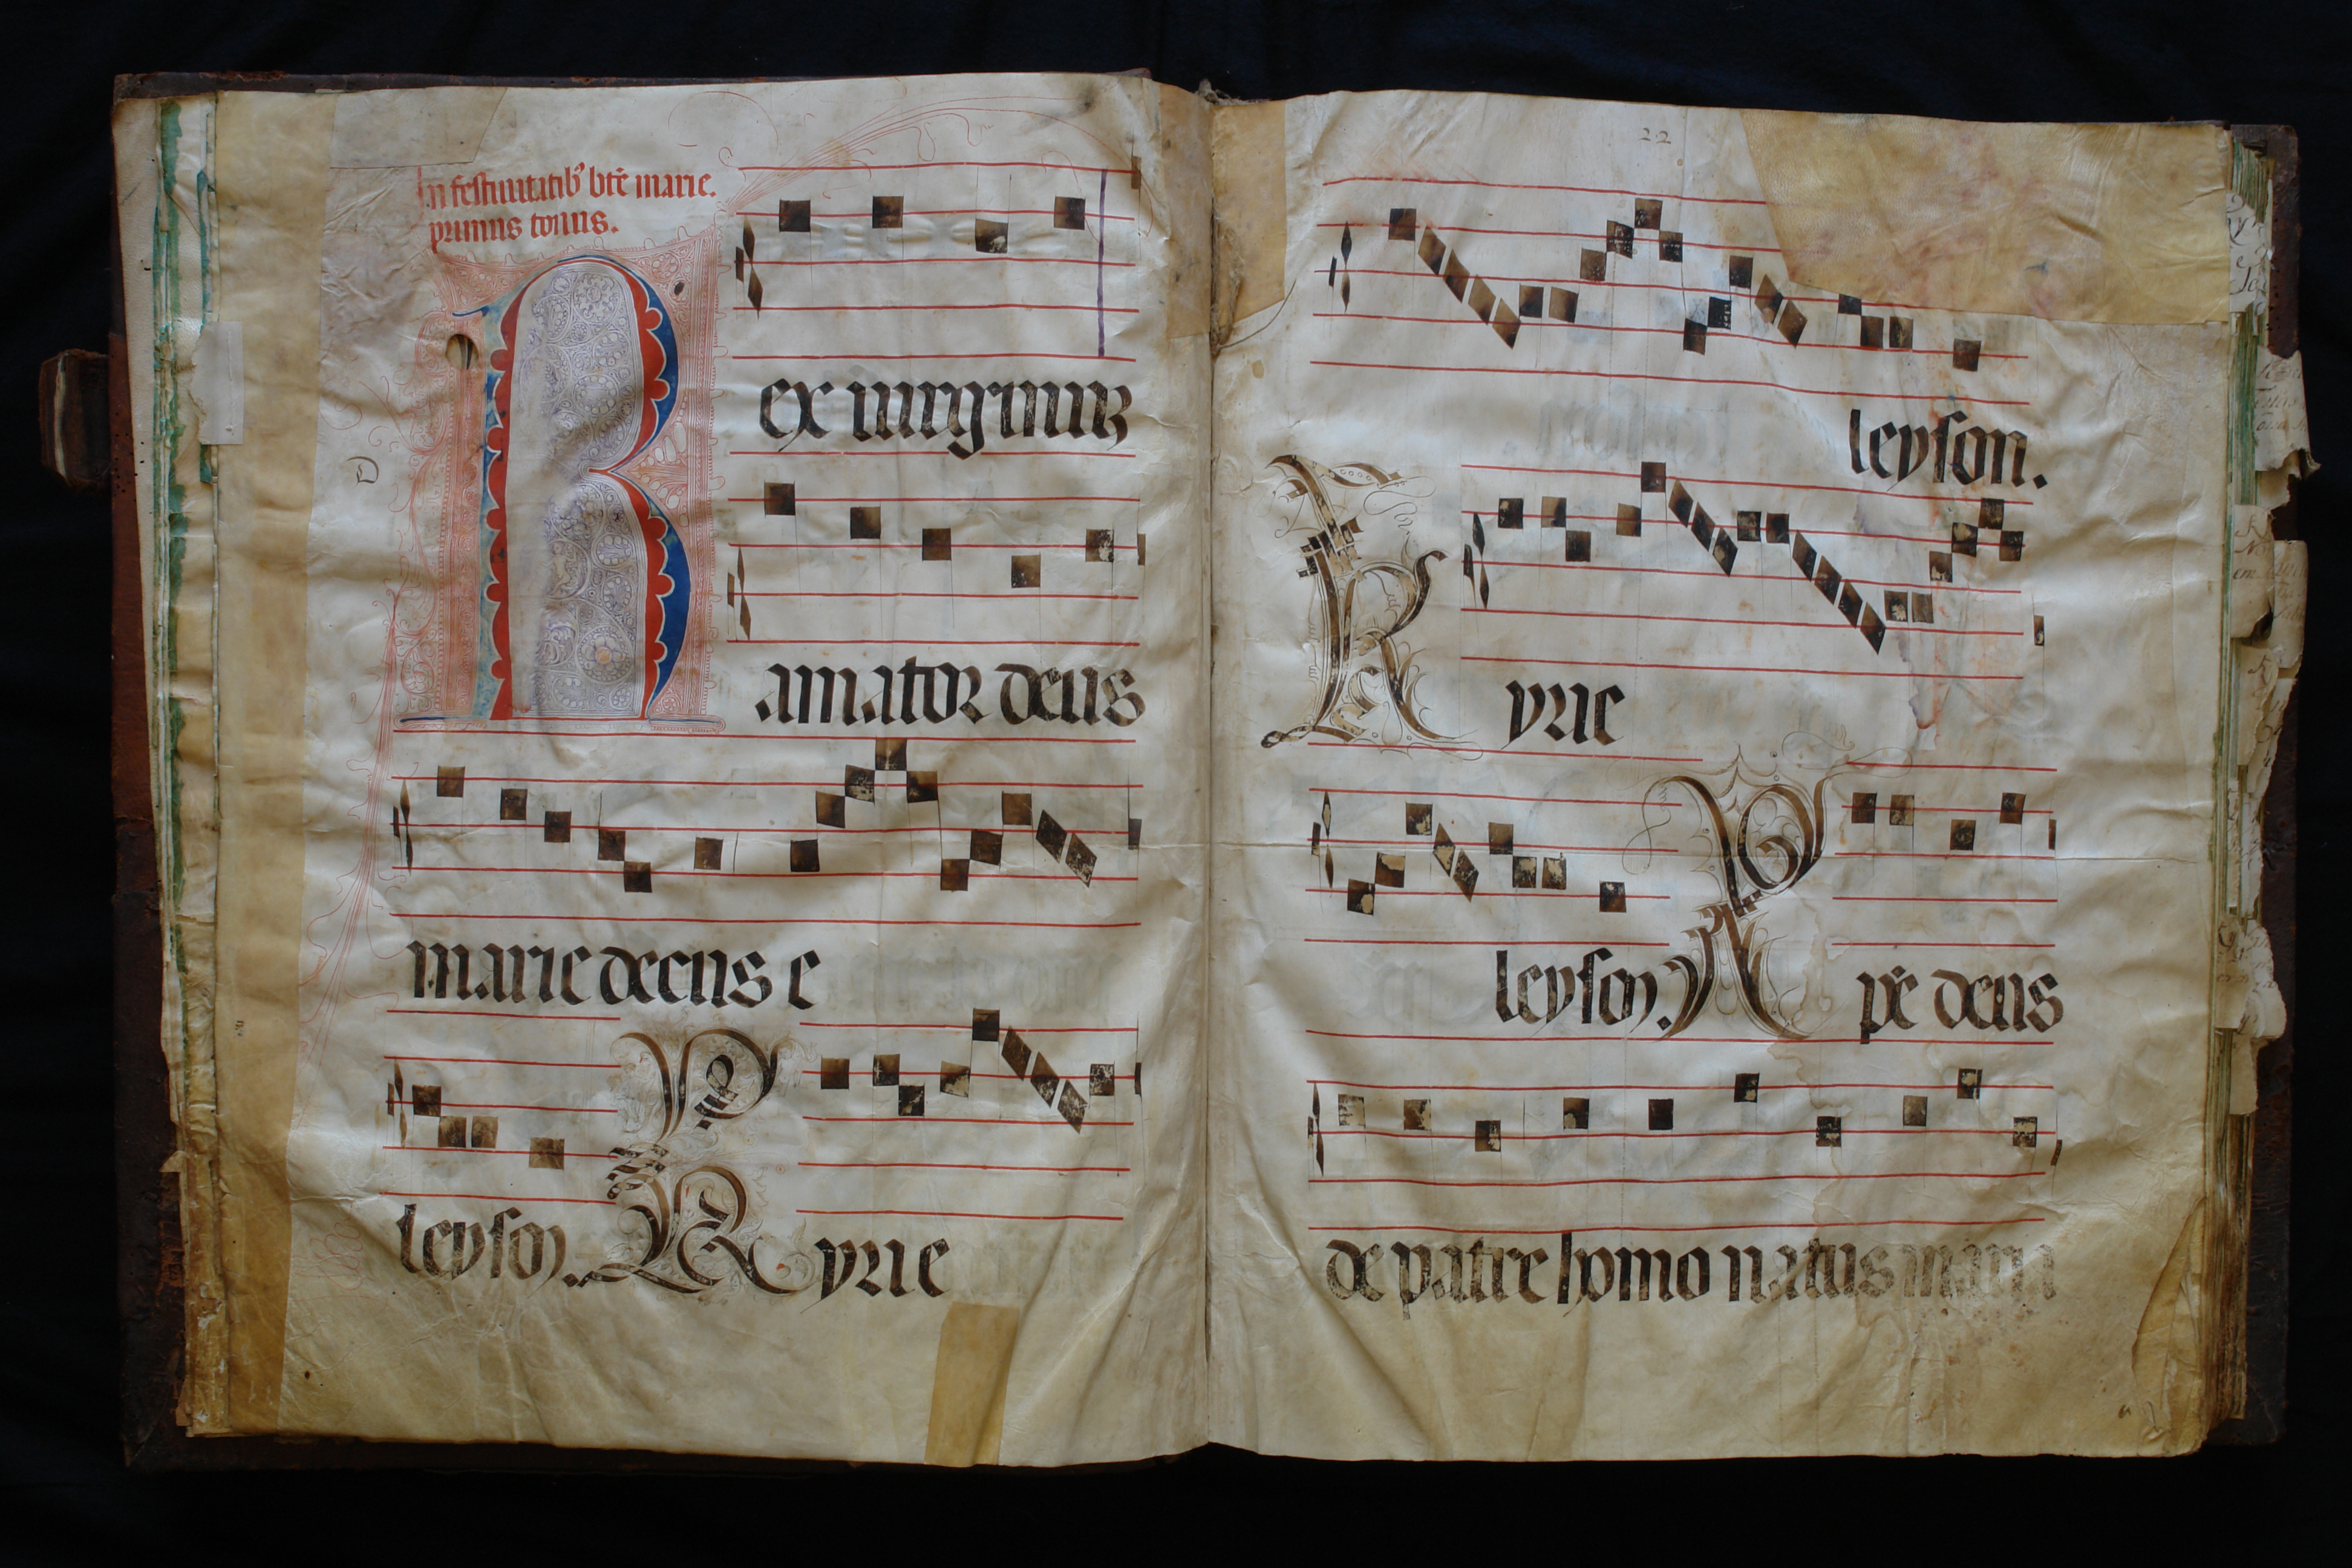 In festiuitatib⁹ btē marie.
primus tonus.
Rex uirginuz
amator deus
marie decus e
leyson. Kyrie
22
leyson.
Kyrie
leyson. Xpē deus
de patre homo natus maria